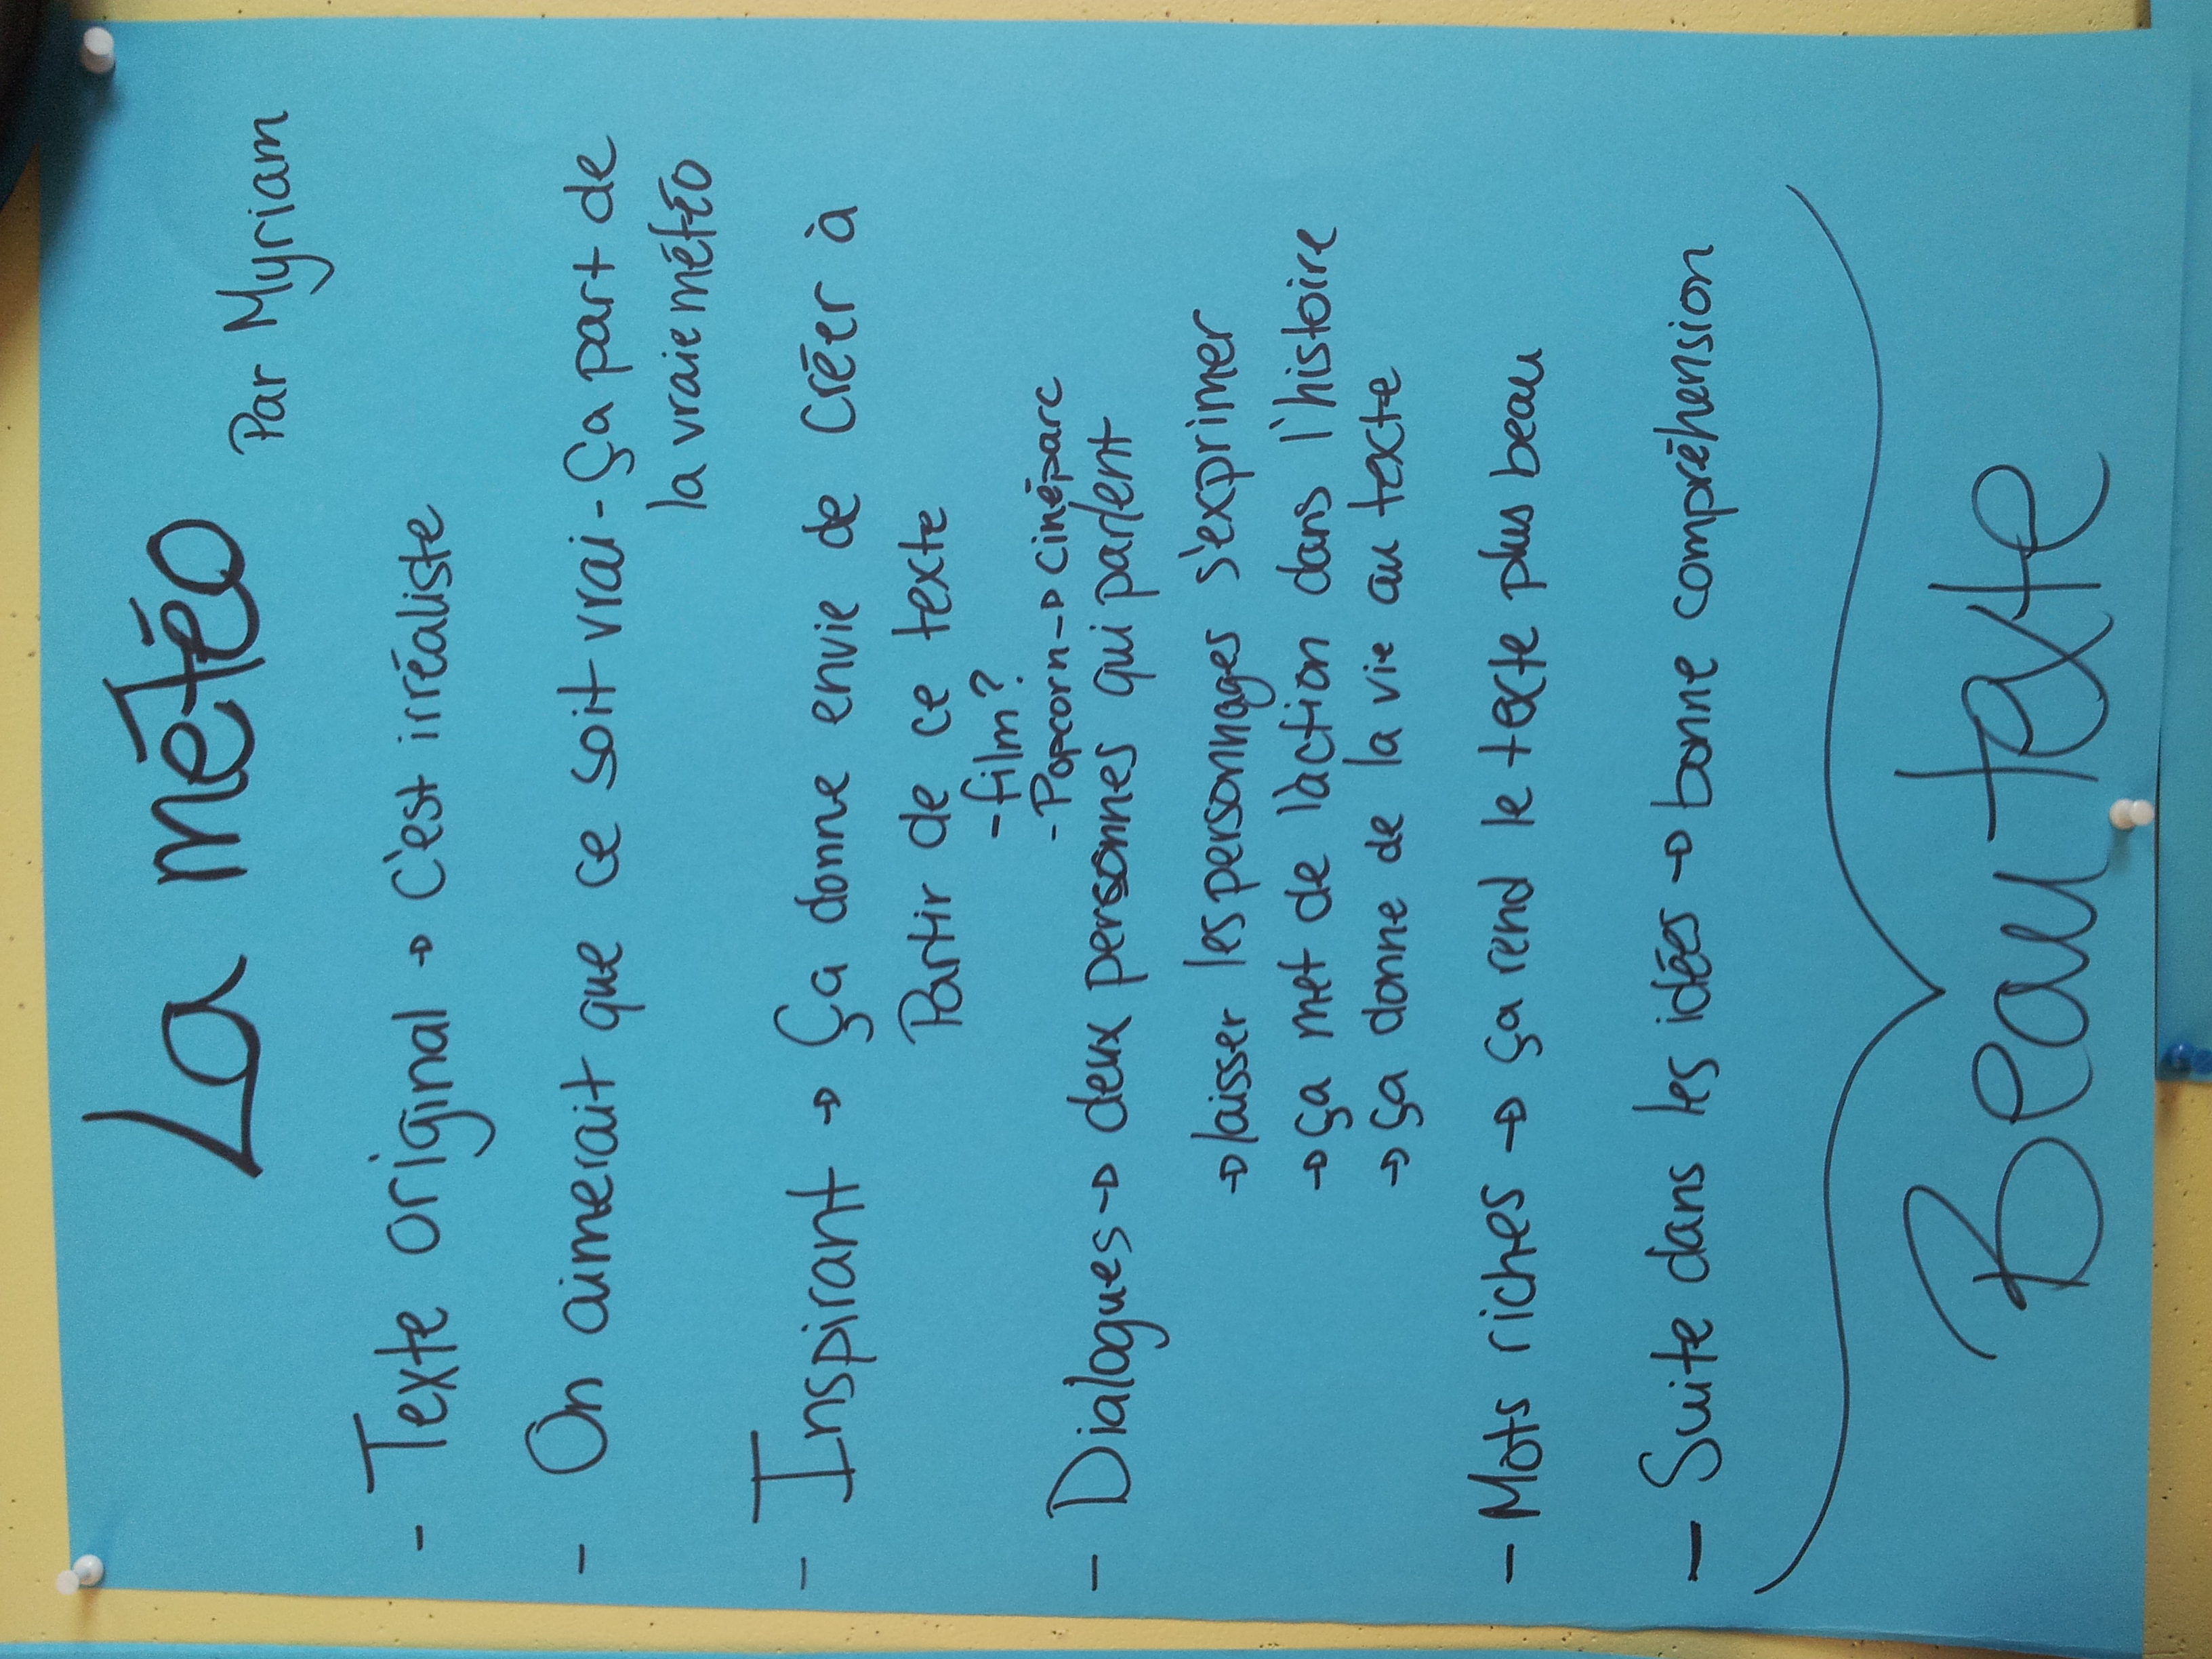 La météo
Par Myriam
- Texte original → C'est irréaliste
- On aimerait que ce soit vrai - Ça part de
la vraie météo
- Inspirant → Ça donne envie de créer à
Partir de ce texte
- film?
- Popcorn → cinéparc
- Dialogues → deux personnes qui parlent
→ laisser les personnages s'exprimer
→ Ça met de l'action dans l'histoire
→ Ça donne de la vie au texte
- Mots riches → Ça rend le texte plus beau
- Suite dans les idées → bonne compréhension
Beau texte